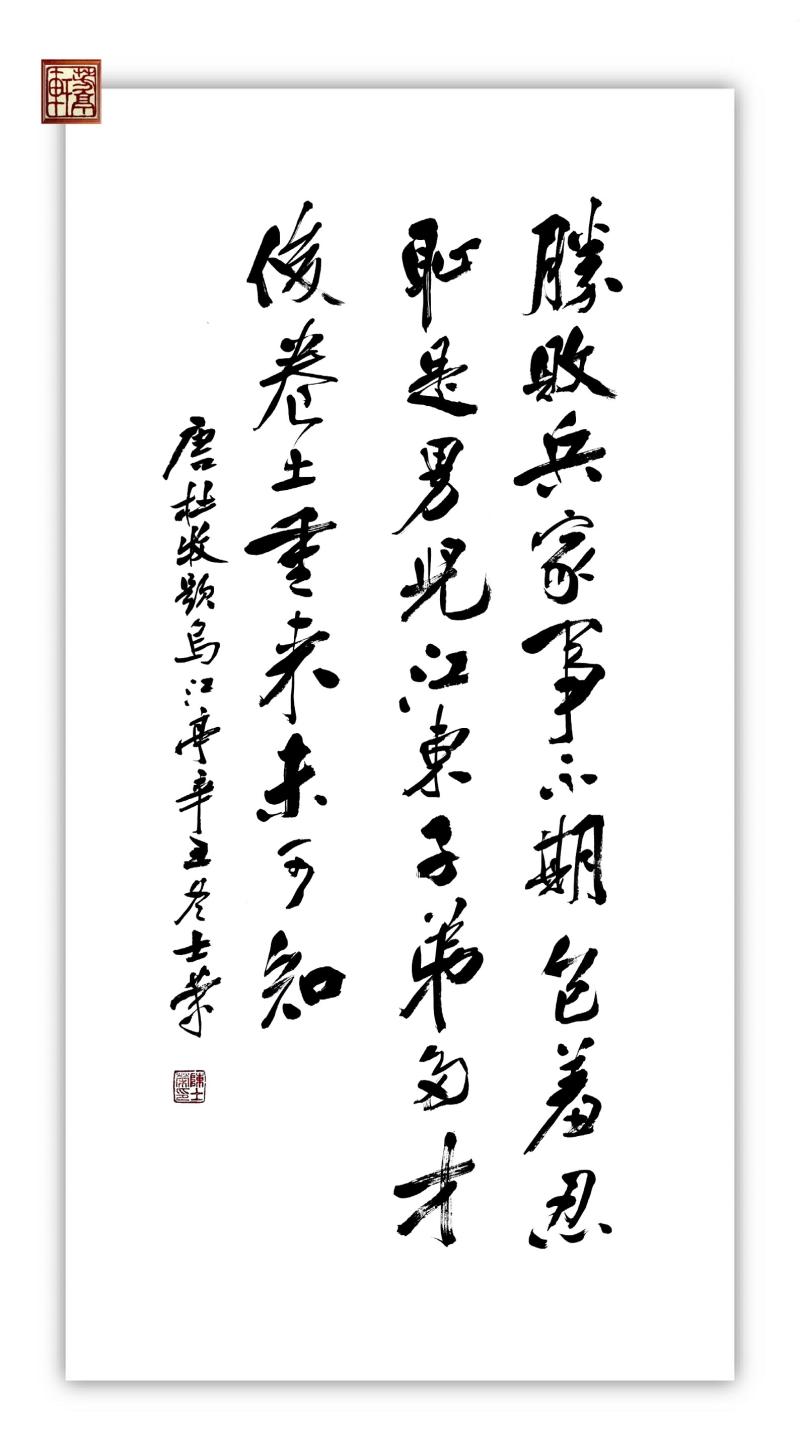 勝敗兵家事不期包羞忍
恥是男児江東子弟多才
俊卷土重来未可知
唐杜牧題烏江亭辛丑冬士荣
陳士荣印